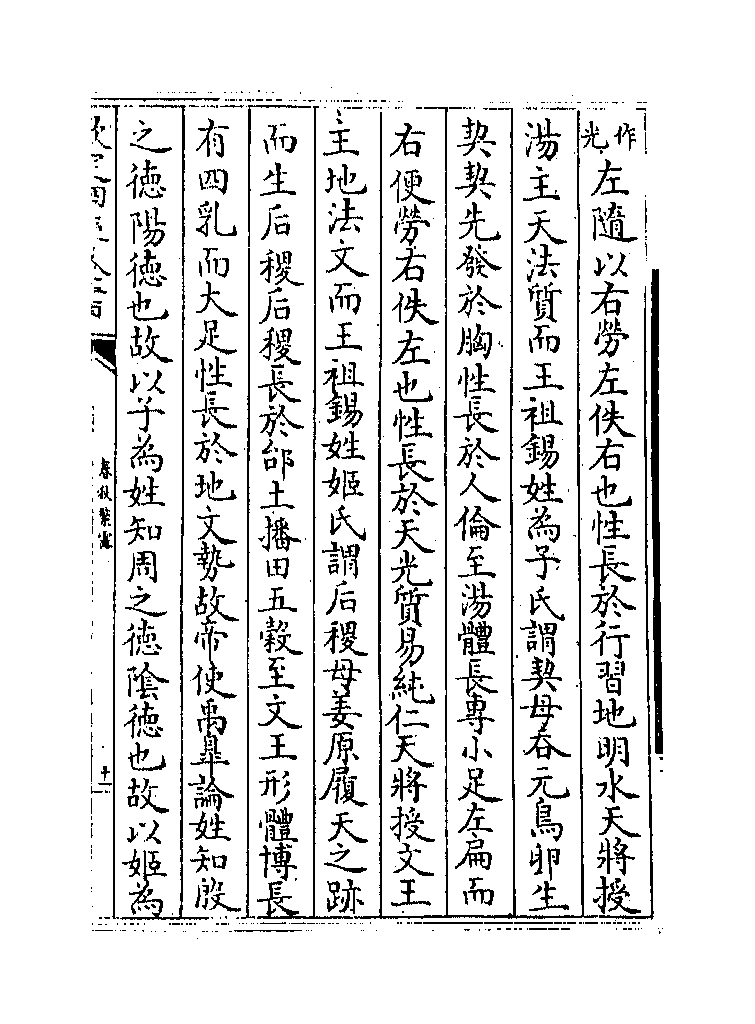 作光左隨以右勞左佚右也性長於行習地明水天將授
湯主天法質而王祖錫姓為子氏謂契母吞元鳥卵生
契契先發於胸性長於人倫至湯體長專小足左扁而
右便勞右佚左也性長於天光質易純仁天將授文王
主地法文而王祖錫姓姬氏謂后稷母姜原履天之跡
而生后稷后稷長於邰土播田五穀至文王形體博長
有四乳而大足性長於地文勢故帝使禹臯論姓知殷
之德陽德也故以子為姓知周之德陰德也故以姬為
春秋繁露
十一